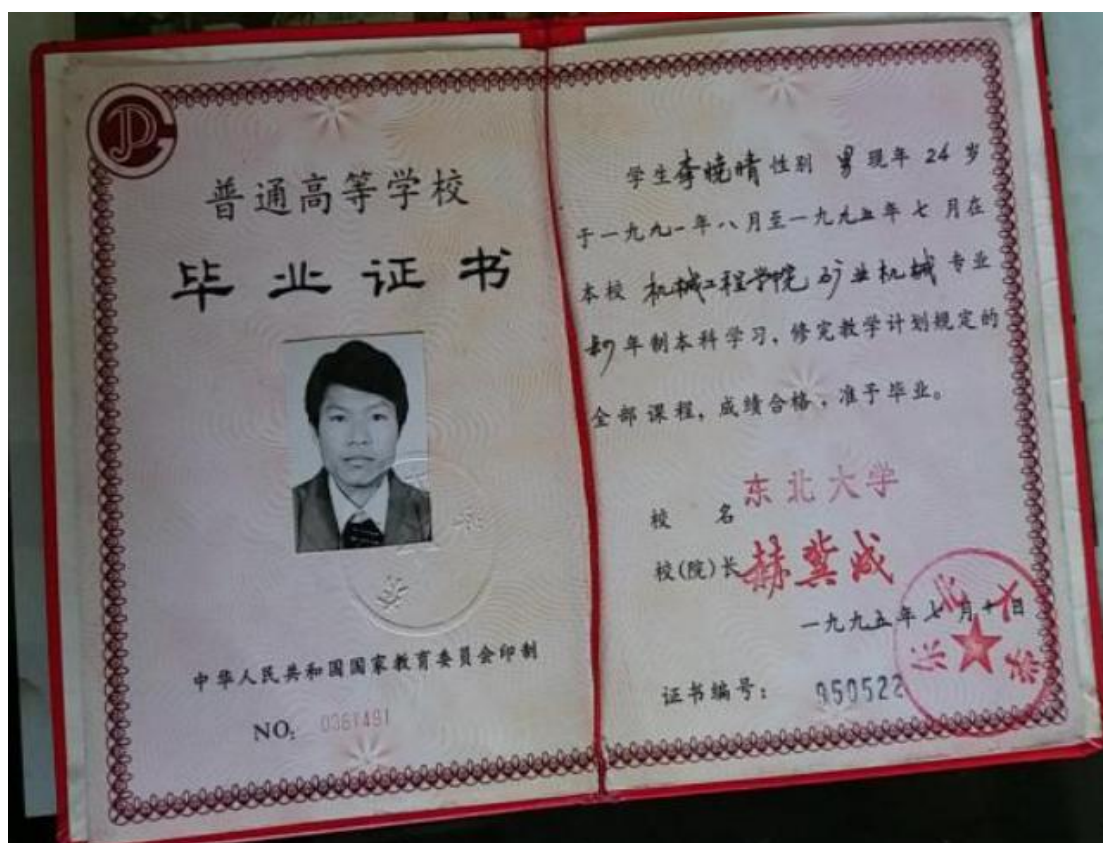 普通高等学校
毕业证书
中华人民共和国国家教育委员会印制
NO:
学生李晓晴性别 男 现年 24 岁
于一九九一年八月至一九九五年七月在
本校 机械工程学院 矿业机械 专业
四年制本科学习，修完教学计划规定的
全部课程，成绩合格，准予毕业。
校 名 东北大学
校(院)长 赫冀成
一九九五年七月十日
证书编号： 950522
东北大学